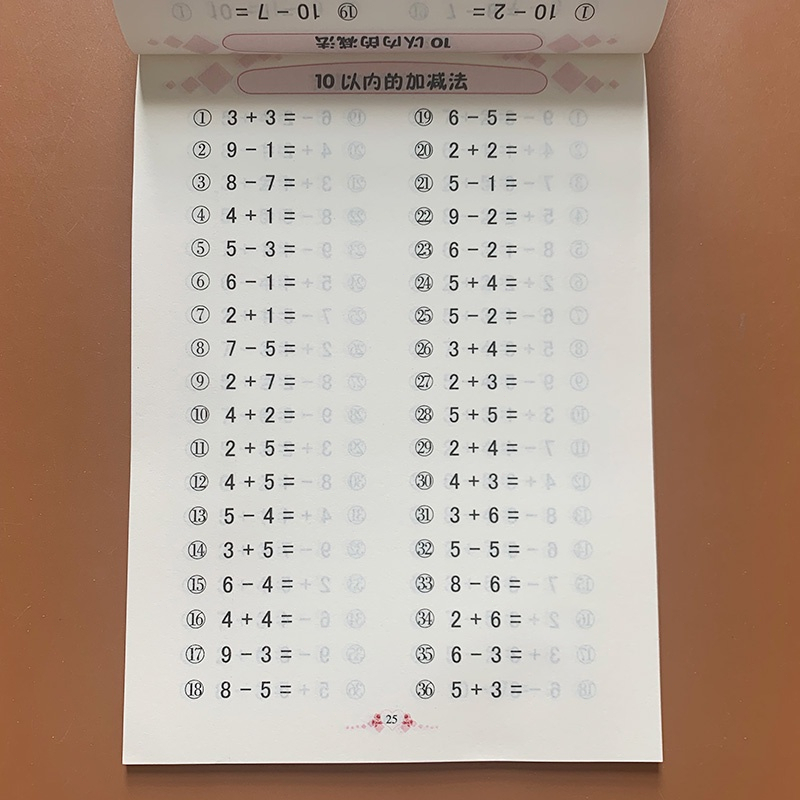 ① 10 − 2 =
⑲ 10 − 7 =
10 以内的减法
10 以内的加减法
① 3 + 3 =
② 9 − 1 =
③ 8 − 7 =
④ 4 + 1 =
⑤ 5 − 3 =
⑥ 6 − 1 =
⑦ 2 + 1 =
⑧ 7 − 5 =
⑨ 2 + 7 =
⑩ 4 + 2 =
⑪ 2 + 5 =
⑫ 4 + 5 =
⑬ 5 − 4 =
⑭ 3 + 5 =
⑮ 6 − 4 =
⑯ 4 + 4 =
⑰ 9 − 3 =
⑱ 8 − 5 =
⑲ 6 − 5 =
⑳ 2 + 2 =
㉑ 5 − 1 =
㉒ 9 − 2 =
㉓ 6 − 2 =
㉔ 5 + 4 =
㉕ 5 − 2 =
㉖ 3 + 4 =
㉗ 2 + 3 =
㉘ 5 + 5 =
㉙ 2 + 4 =
㉚ 4 + 3 =
㉛ 3 + 6 =
㉜ 5 − 5 =
㉝ 8 − 6 =
㉞ 2 + 6 =
㉟ 6 − 3 =
㊱ 5 + 3 =
25